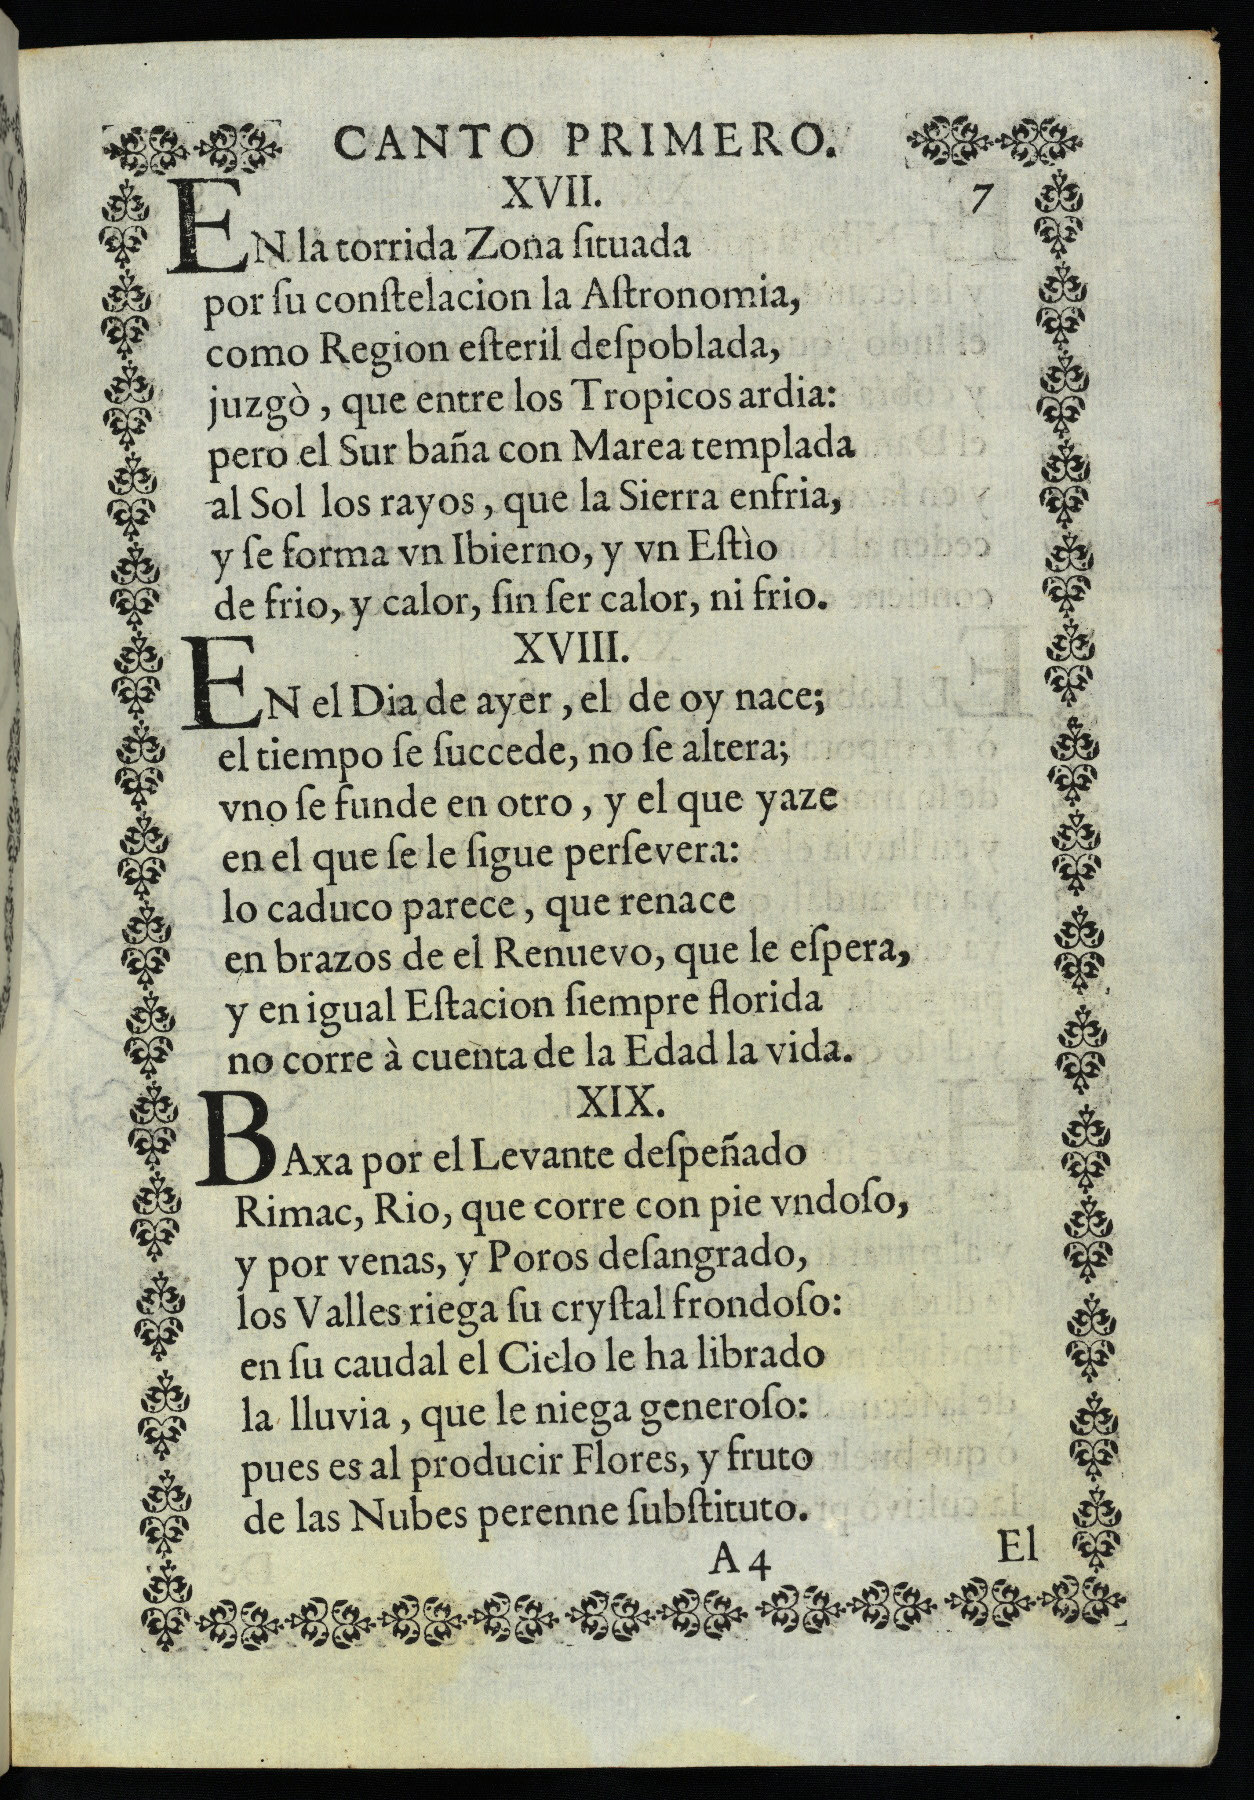 CANTO PRIMERO.
XVII. 7
EN la torrida Zona ſituada
por ſu conſtelacion la Aſtronomia,
como Region eſteril deſpoblada,
juzgò, que entre los Tropicos ardia:
pero el Sur baña con Marea templada
al Sol los rayos, que la Sierra enfria,
y ſe forma vn Ibierno, y vn Eſtìo
de frio, y calor, ſin ſer calor, ni frio.
XVIII.
EN el Dia de ayer, el de oy nace;
el tiempo ſe ſuccede, no ſe altera;
vno ſe funde en otro, y el que yaze
en el que ſe le ſigue perſevera:
lo caduco parece, que renace
en brazos de el Renuevo, que le eſpera,
y en igual Eſtacion ſiempre florida
no corre à cuenta de la Edad la vida.
XIX.
BAxa por el Levante deſpeñado
Rimac, Rio, que corre con pie vndoſo,
y por venas, y Poros deſangrado,
los Valles riega ſu cryſtal frondoſo:
en ſu caudal el Cielo le ha librado
la lluvia, que le niega generoſo:
pues es al producir Flores, y fruto
de las Nubes perenne ſubſtituto.
A 4 El